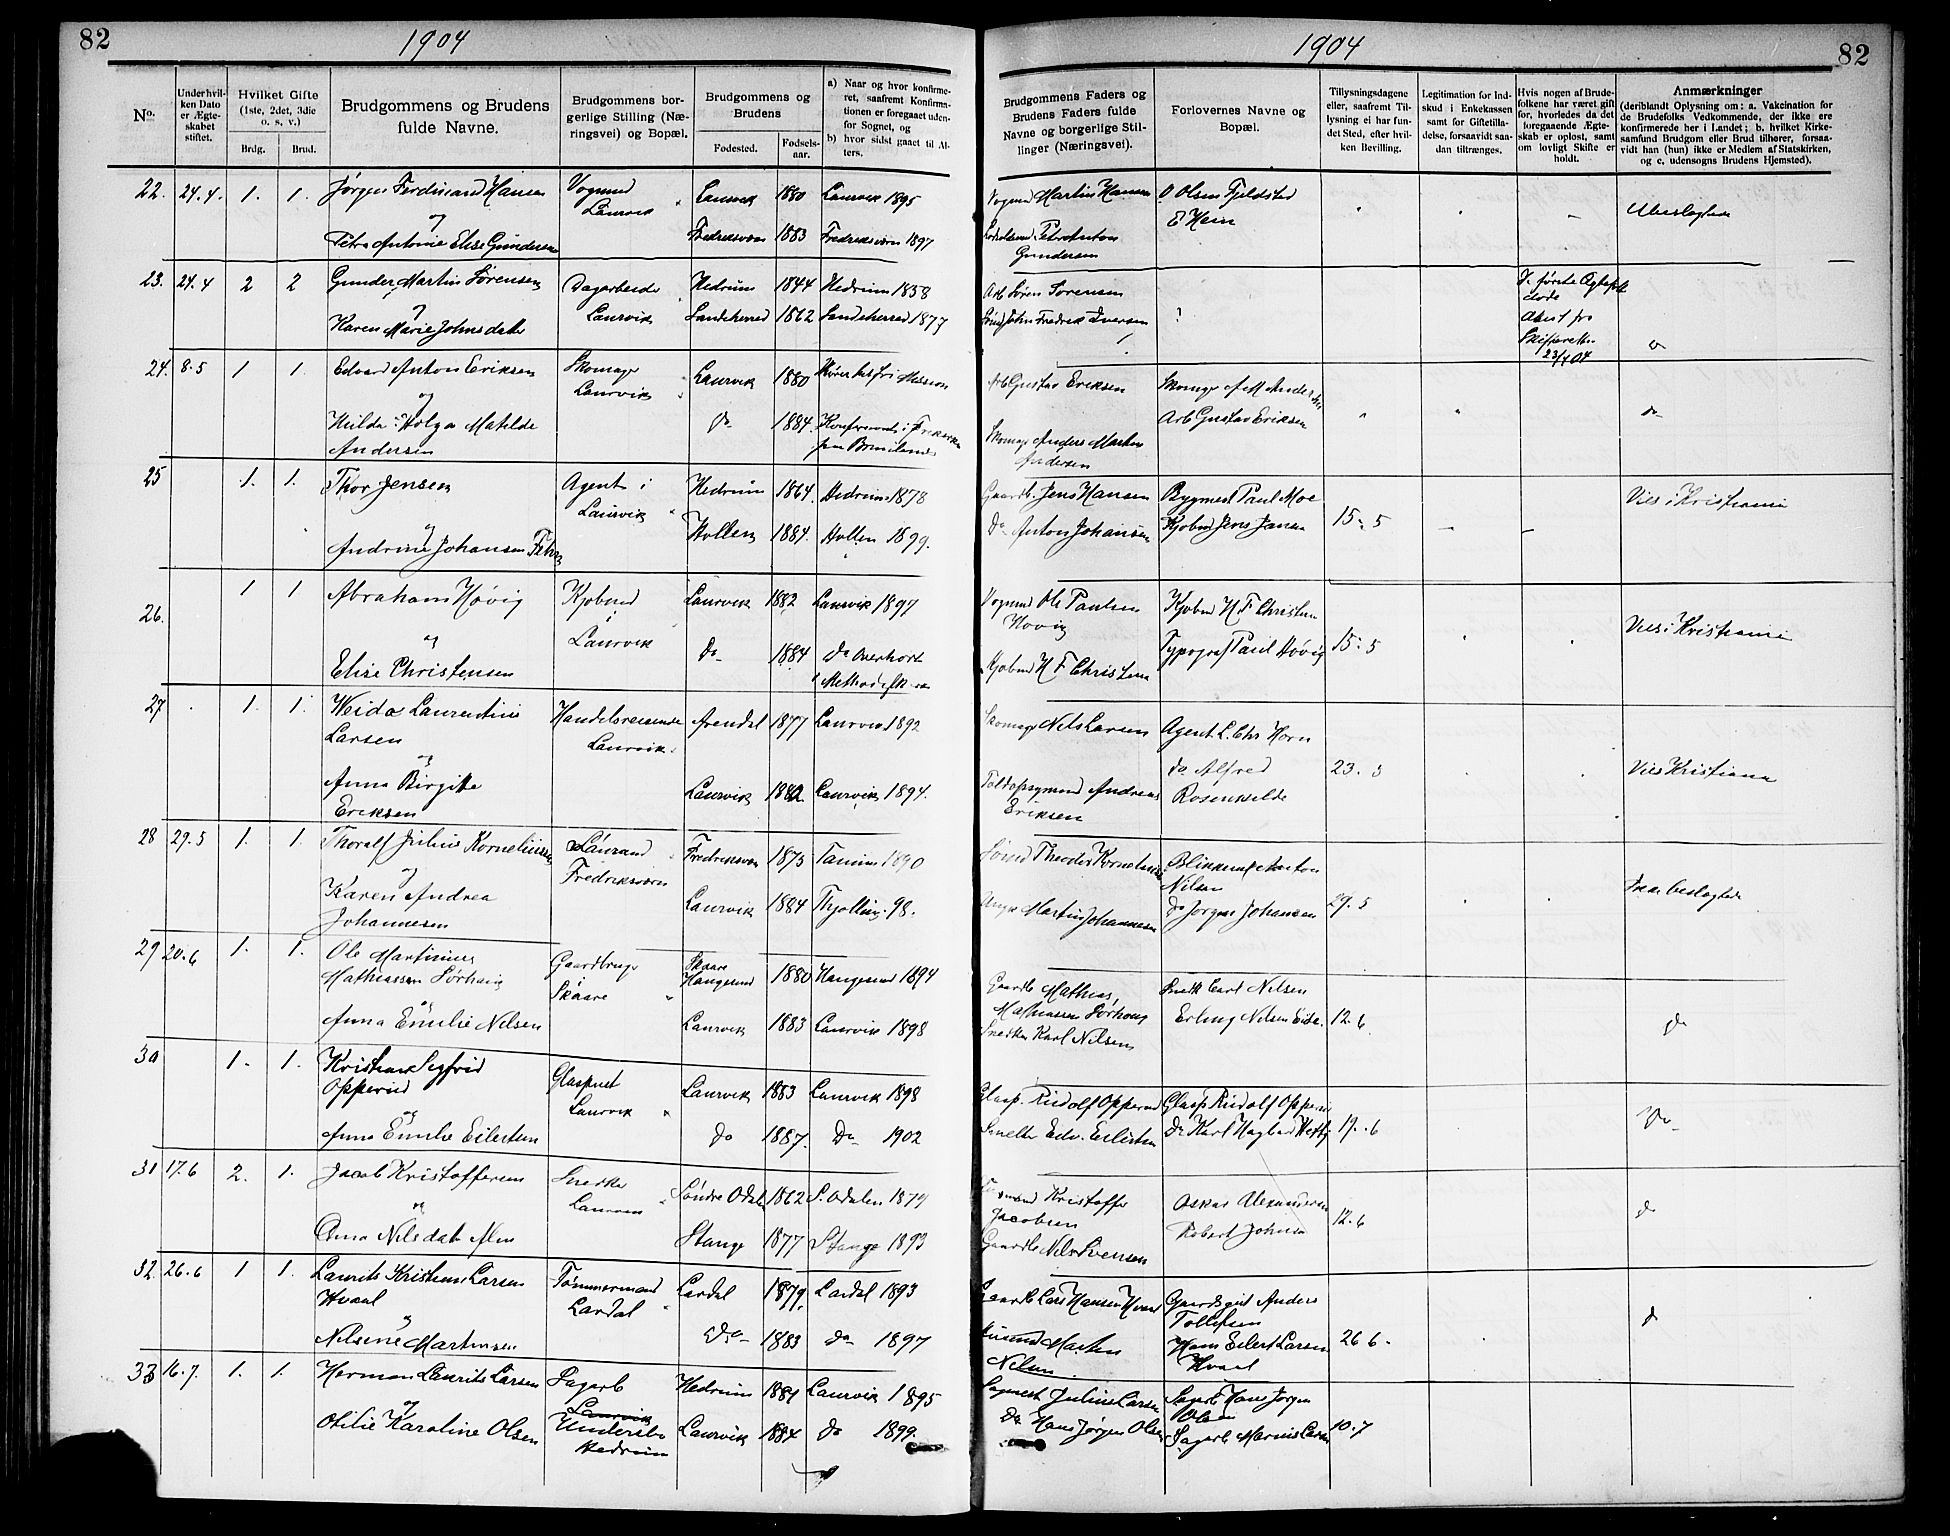 82
1904
No.
Under hvil-
ken Dato
er Ægte-
skabet
stiftet.
Hvilket Gifte
(1ste, 2det, 3die
o. s. v.)
Brdg.
Brud.
Brudgommens og Brudens
fulde Navne.
Brudgommens bor-
gerlige Stilling (Næ-
ringsvei) og Bopæl.
Brudgommens og
Brudens
Fødested.
Fødsels-
aar.
a) Naar og hvor konfirme-
ret, saafremt Konfirma-
tionen er foregaaet uden-
for Sognet, og
b) hvor sidst gaaet til Al-
ters.
22. 24.4. 1. 1. Jørgen Ferdinand Hansen
Vognmd
Laurvik
Laurvik 1880 Laurvik 1895
og
Petra Antonie Elise Gundersen
Fredriksværn 1883 Fredriksværn 1897
23. 24.4 2 2 Gunder Martin Sørensen
Dagarbeide
Laurvik
Hedrum 1844 Hedrum 1858
og
Karen Marie Johnsdatter
Sandeherred 1862 Sandeherred 1877
24. 8.5 1 1. Edvard Anton Eriksen
Skomager
Laurvik
Laurvik 1880
og
Hilda Helga Matilde
Andersen
do 1884.
25 1. 1. Thor Jensen
Agent i
Laurvik
Hedrum 1864. Hedrum 1878
og
Andrine Johansen
Hollen 1884. Hollen 1899.
26. 1 1 Abraham Høvig
Kjøbmd
Laurvik
Laurvik 1882 Laurvik 1897
og
Elise Christensen
Do 1884 do
27 1. 1. Weida Laurentius
Larsen
Handelsreisende
Laurvik
Arendal 1877 Laurvik 1892
og
Anna Birgitte
Eriksen
Laurvik 1882 Laurvik 1894.
28 29.5 1. 1. Thoralf Julius Kornelius
Fredriksværn
Fredriksværn 1875 Tanum 1890
og
Karen Andrea
Johannesen
Laurvik 1884 Thjølling 98.
29 20.6 1. 1. Ole Martinius
Mathiassen Sørhaug
Gaardbruger
Skaare
Skaare
Haugesund 1880 Haugesund 1894
og
Anna Emilie Nilsen
Laurvik 1883 Laurvik 1898
30 1. 1. Kristian Sigfrid
Opperud
Glaspust
Laurvik
Laurvik 1883 Laurvik 1898
og
Anna Emilie Eilertsen
do 1887. Do 1902
31 17.6 2. 1. Jacob Kristoffersen
Snedker
Laurvik
Søndre Odalen 1862 S. Odalen 1879
og
Anna Nilsdatter Alm
Stange 1877 Stange 1893
32. 26.6 1 1. Laurits Kristian Larsen
Hvaal
Tømmermand
Lardal
Lardal 1879, Lardal 1893
og
Nilsine Martinsen
Do 1883 do 1897
33 16.7. 1. 1. Herman Laurits Larsen
Sagarb
Laurvik
Hedrum 1881 Laurvik 1895
og
Otilie Karoline Olsen
Undersbo
Hedrum
Laurvik 1884 do 1899.
1904
82
Brudgommens Faders og
Brudens Faders fulde
Navne og borgerlige Stil-
linger (Næringsvei).
Forlovernes Navne og
Bopæl.
Tillysningsdagene
eller, saafremt Til-
lysning ei har fun-
det Sted, efter hvil-
ken Bevilling.
Legitimation for Ind-
skud i Enkekassen
samt for Giftetilla-
delse, forsaavidt saa-
dan tiltrænges.
Hvis nogen af Brude-
folkene har været gift
før, hvorledes da det
foregaaende Ægte-
skab er opløst, samt
om lovligt Skifte er
holdt.
Anmærkninger
(deriblandt Oplysning om: a. Vakcination for
de Brudefolks Vedkommende, der ikke ere
konfirmerede her i Landet; b. hvilket Kirke-
samfund Brudgom eller Brud tilhører, forsaa-
vidt han (hun) ikke er Medlem af Statskirken,
og c. udensogns Brudens Hjemsted).
Vognmd Martin Hansen
O Olsen Fjeldsted
E Hein
Ubeslægtede
Petr Anton
Gundersen
Arb Søren Sørensen
John Fredrik Iversen
?
døde
Attest fra
Skifteretten
23/4 04
do
Arb Gustav Eriksen
Skomager A M Andersen
Arb Gustav Eriksen
do
Skomager Anders Martin
Andersen
Gaardb. Jens Hansen
Bygmest Paul Moe
Viet i Kristiania
Do Anton Johansen
Kjøbmd Jens Jansen
15.5
Vognmd Ole Paulsen
Høvig
Kjøbmd H F Christensen
Typograf Paul Høvig
15.5
Viet i Kristiania
Kjøbmd H F Christensen
Skomager Nils Larsen
Agent L. Chr Horn
do Alfred
Rosenkilde
23.5
Viet Kristiania
Toldopsynmd Andreas
Eriksen
Theodor Kornelius
Blikkensl Anton
Nilsen
do Jørgen Johansen
29.5
Ikke beslægtede
Martin Johannesen
Gaardb Mathias
Mathiassen Sørhaug
Snedker Karl Nilsen
Snedk Carl Nilsen
Erling Nilsen Eide.
12.6.
do
Glasp. Rudolf Opperud
Glasp Rudolf Opperud
Do Karl Hagbart Westby
19.6
Do
Smelter Edv. Eilertsen
Kristoffer
Jacobsen
Oskar Alexandersen
Robert Johnsen
12.6
do
Gaardb Nils Svensen
Gaardb Lars Hansen Hvaal
Gaardsgut Anders
Tollefsen
Hans Eilert Larsen
Hvaal
26 6.
do
Husmd Martin
Nilsen
Sagmest Julius Larsen
Do Hans Jørgen Olsen
Sagarb Hans Jørgen
Olsen
Sagarb Marius Larsen
10.7